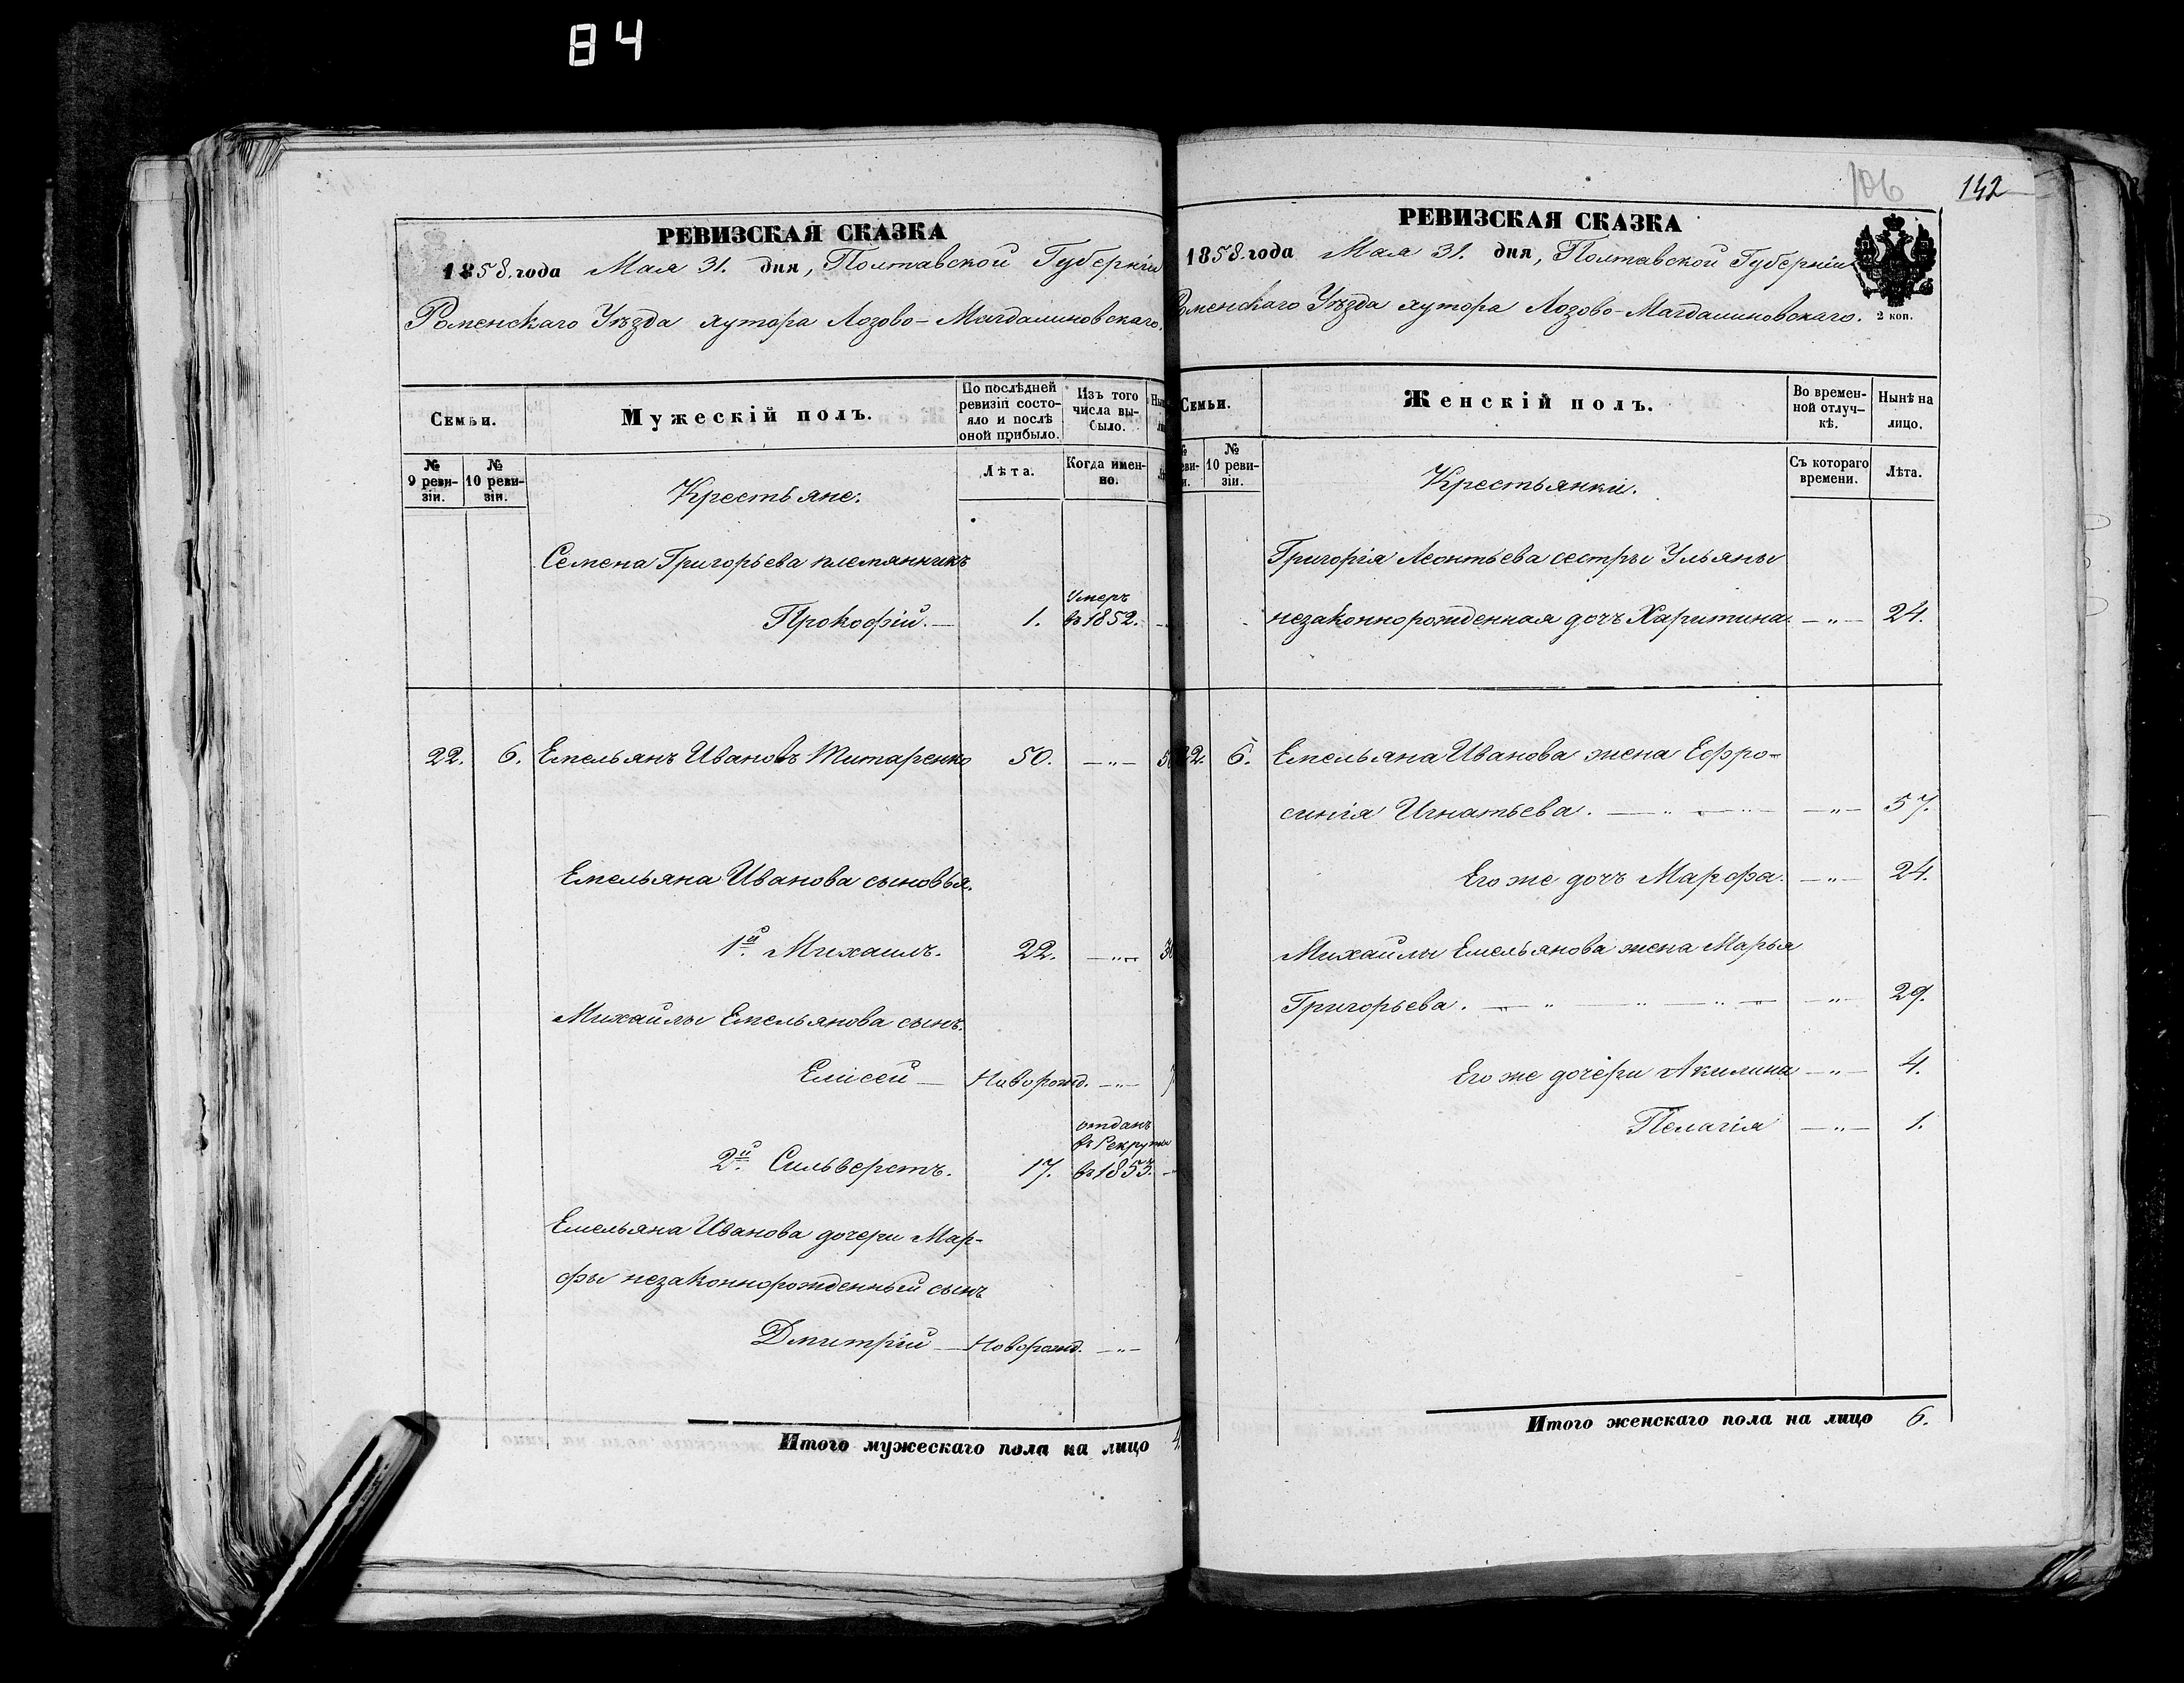 84
РЕВИЗСКАЯ СКАЗКА
1858. года Мая 31. дня, Полтавской Губерніи
Роменскаго Уѣзда хутора Лозово-Магдалиновскаго.
Семьи.
Мужескій полъ.
По послѣдней ревизіи состояло и послѣ оной прибыло.
Изъ того числа выбыло.
№ 9 ревизіи.
№ 10 ревизіи.
Крестьяне.
Лѣта.
Когда именно.
Семена Григорьева племянникъ
Прокофій. — 1. Умеръ въ 1852.
22. 6. Емельянъ Ивановъ Титаренко 50. —„—
Емельяна Иванова сыновья.
1й. Михаилъ. 22. —„—
Михайлы Емельянова сынъ.
Елисей — Новорожд. —„—
2й. Сильверстъ. 17. отданъ въ Рекруты въ 1853.
Емельяна Иванова дочери Мар-
фы незаконнорожденный сынъ
Дмитрій — Новорожд. —„—
Итого мужескаго пола на лицо 4.
106 142
РЕВИЗСКАЯ СКАЗКА
1858. года Мая 31. дня, Полтавской Губерніи
Роменскаго Уѣзда хутора Лозово-Магдалиновскаго.
2 коп.
Семьи.
Женскій полъ.
Во временной отлучкѣ.
Нынѣ на лицо.
№ 10 ревизіи.
Крестьянки.
Съ котораго времени.
Лѣта.
Григорія Леонтьева сестры Ульяны
незаконнорожденная дочь Харитина. —„— 24.
22. 6. Емельяна Иванова жена Ефро-
синія Игнатьева. —„— 57.
Его же дочь Марфа. —„— 24.
Михайлы Емельянова жена Марья
Григорьева. —„— 29.
Его же дочери Акилина —„— 4.
Пелагія —„— 1.
Итого женскаго пола на лицо 6.